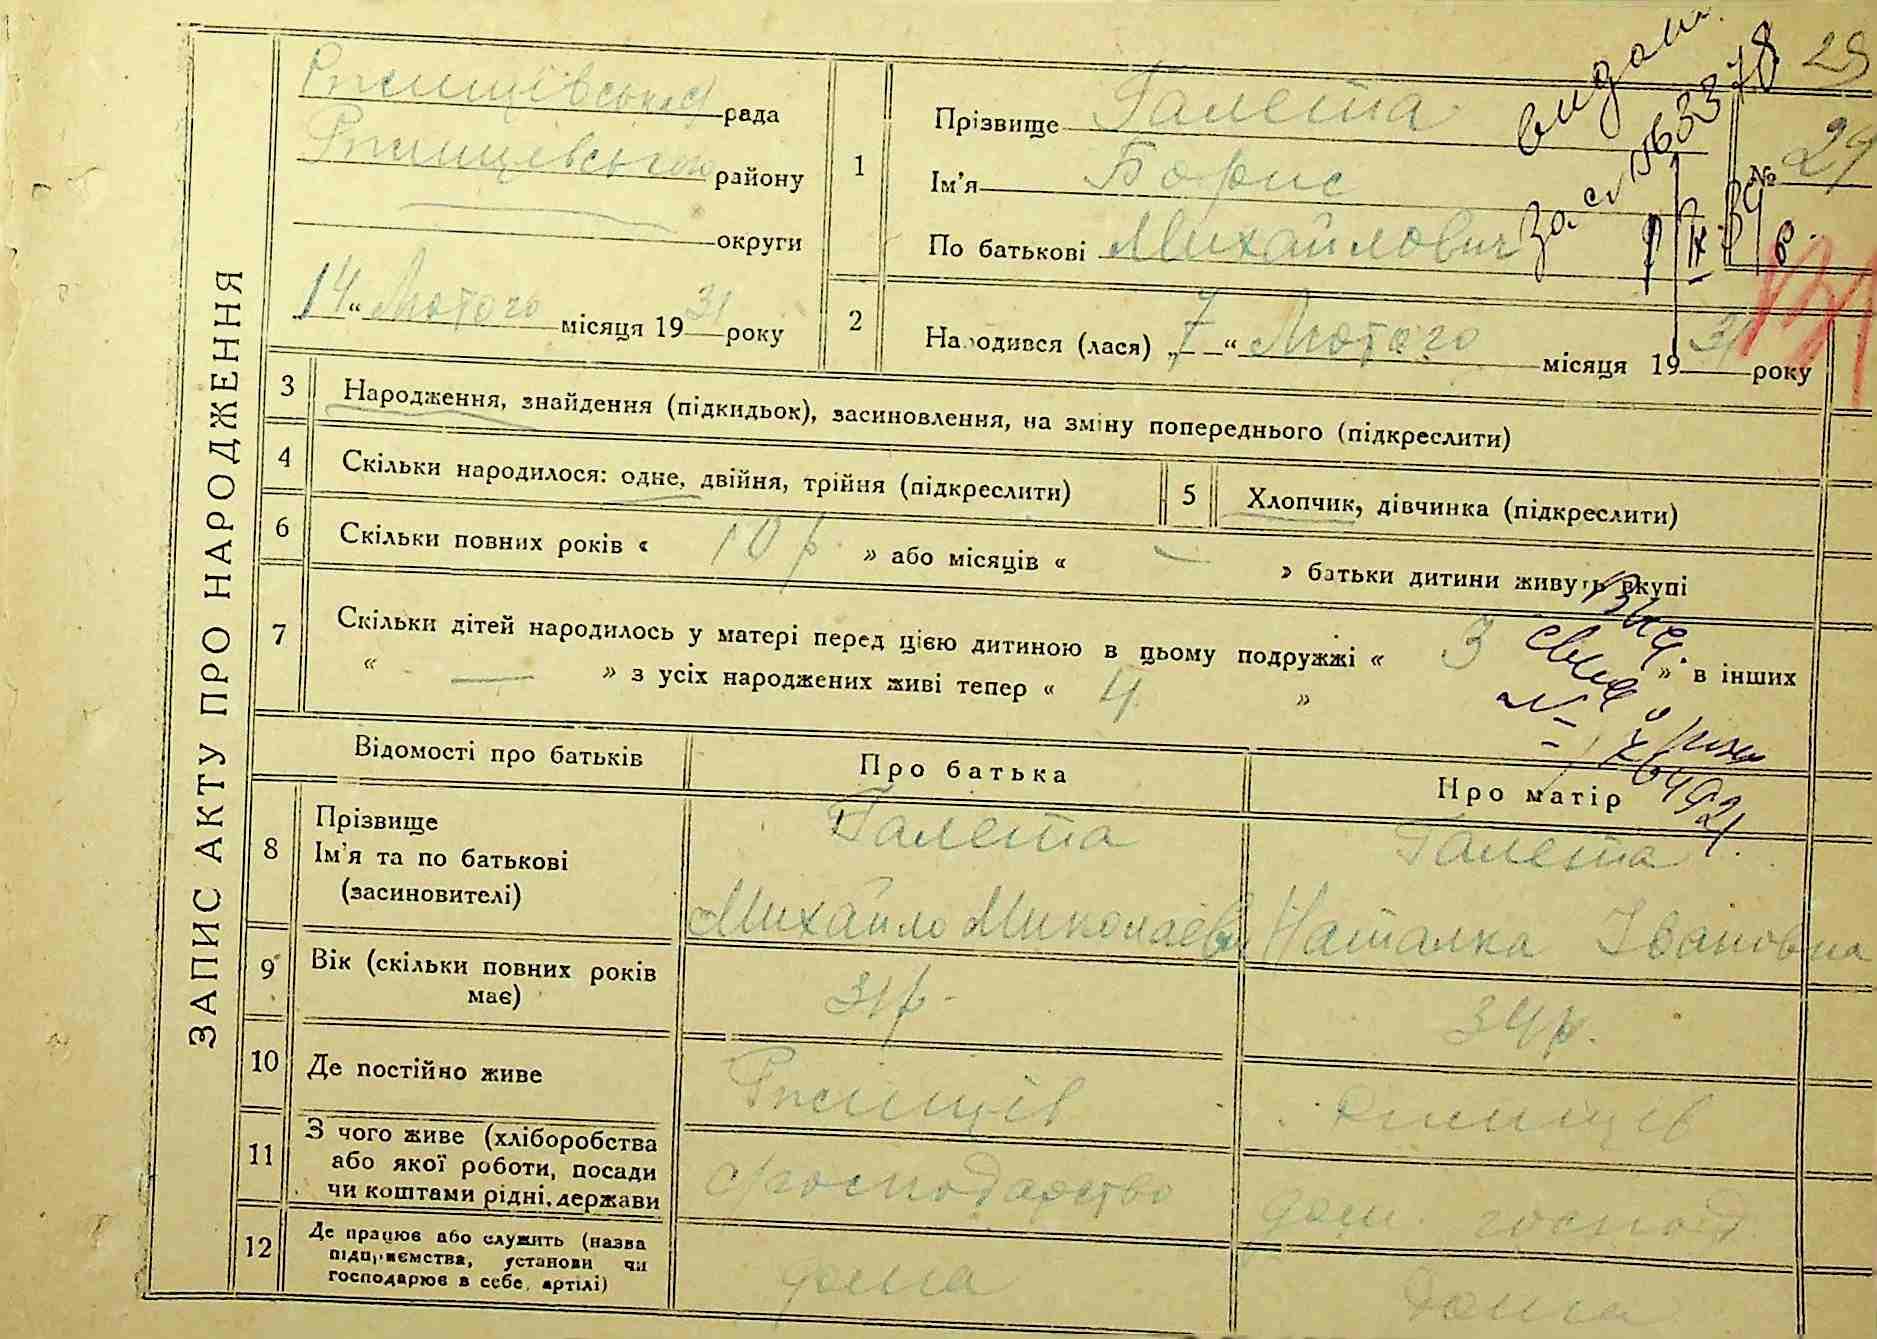 ЗАПИС АКТУ ПРО НАРОДЖЕННЯ
Ржищівська рада
Ржищівського району
округи
14 “ Лютого місяця 1931 року
1
Прізвище Галета
Ім’я Борис
По батькові Михайлович
29
№ 29
видан.
За св 1563378
2
Народився (лася) „ 7 “ Лютого місяця 1931 року
3 Народження, знайдення (підкидьок), засиновлення, на зміну попереднього (підкреслити)
4 Скільки народилося: одне, двійня, трійня (підкреслити)
5 Хлопчик, дівчинка (підкреслити)
6 Скільки повних років « 10 р. » або місяців « — » батьки дитини живуть вкупі
7 Скільки дітей народилось у матері перед цією дитиною в цьому подружжі « 3 » в інших
“ — » з усіх народжених живі тепер “ 4 »
Відомості про батьків
Про батька
Про матір
8
Прізвище
Ім’я та по батькові
(засиновителі)
Галета
Михайло Миколаєв.
Галета
Наталка Івановна
9
Вік (скільки повних років
має)
31 р.
34 р.
10 Де постійно живе
Ржищів
Ржищів
11
З чого живе (хліборобства
або якої роботи, посади
чи коштами рідні, держави
господарство
дом. господ
12
Де працює або служить (назва
підприємства, установи чи
господарює в себе, артілі)
дома
дома